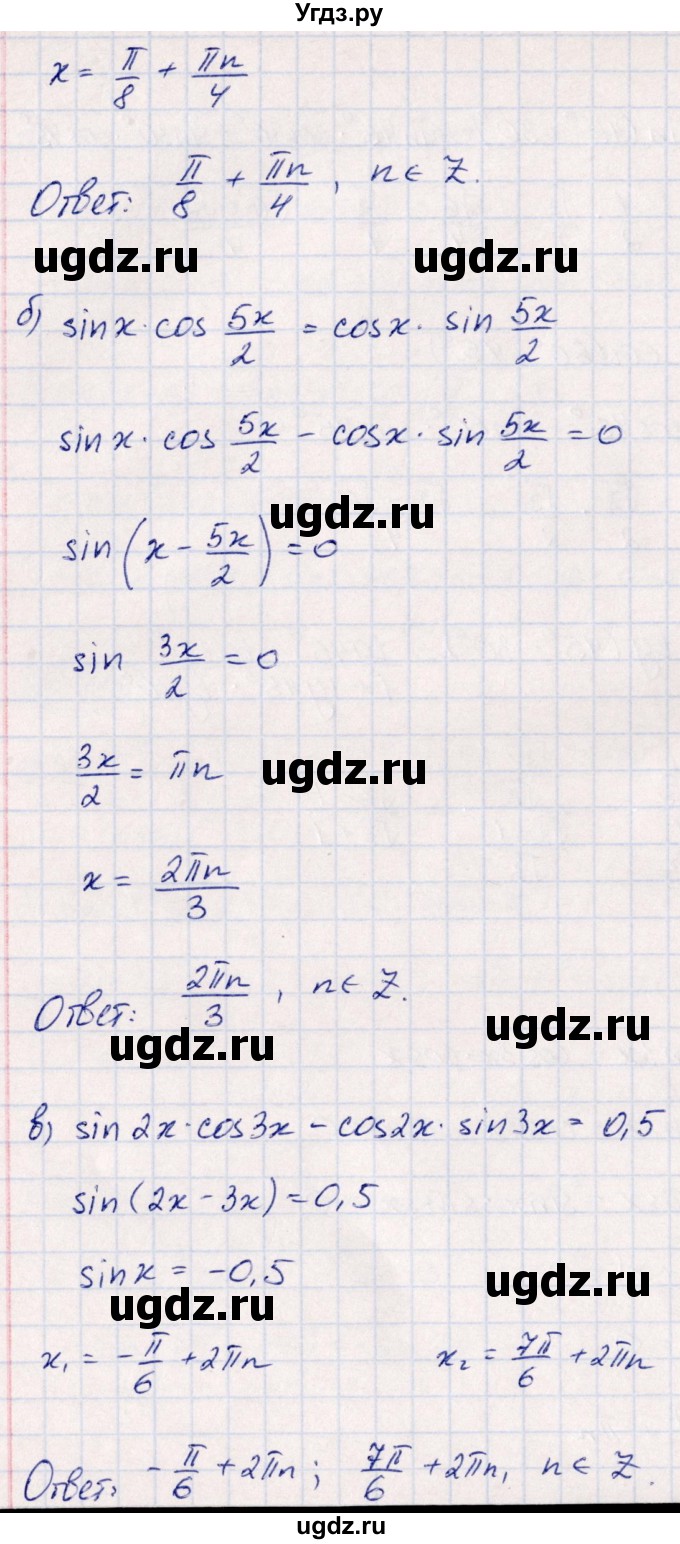 Угдз.ру
x = π/8 + πn/4
Ответ: π/8 + πn/4, n ∈ Z.
ugdz.ru ugdz.ru
б) sinx · cos 5x/2 = cosx · sin 5x/2
sinx · cos 5x/2 - cosx · sin 5x/2 = 0
ugdz.ru
sin(x - 5x/2) = 0
sin 3x/2 = 0
3x/2 = πn
ugdz.ru
x = 2πn/3
Ответ: 2πn/3, n ∈ Z.
ugdz.ru ugdz.ru
в) sin2x · cos3x - cos2x · sin3x = 0,5
sin(2x - 3x) = 0,5
sinx = -0,5
ugdz.ru ugdz.ru
x₁ = -π/6 + 2πn x₂ = 7π/6 + 2πn
Ответ: -π/6 + 2πn; 7π/6 + 2πn, n ∈ Z.
ugdz.ru